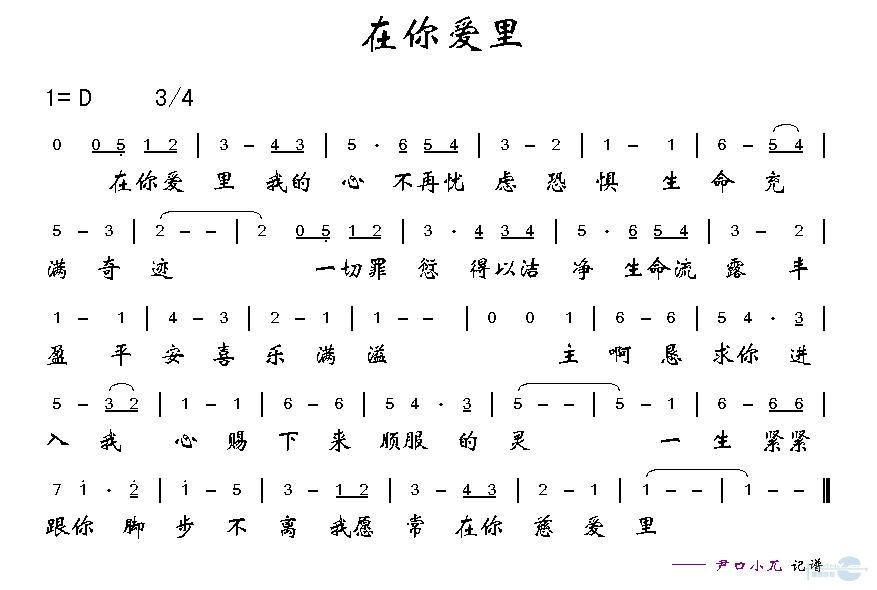 在你爱里
1= D 3/4
0 0 5 1 2 | 3 - 4 3 | 5 · 6 5 4 | 3 - 2 | 1 - 1 | 6 - 5 4 |
在你爱里我的心不再忧虑恐惧生命充
5 - 3 | 2 - - | 2 0 5 1 2 | 3 · 4 3 4 | 5 · 6 5 4 | 3 - 2 |
满奇迹一切罪愆得以洁净生命流露丰
1 - 1 | 4 - 3 | 2 - 1 | 1 - - | 0 0 1 | 6 - 6 | 5 4 · 3 |
盈平安喜乐满溢主啊恳求你进
5 - 3 2 | 1 - 1 | 6 - 6 | 5 4 · 3 | 5 - - | 5 - 1 | 6 - 6 6 |
入我心赐下来顺服的灵一生紧紧
7 1 · 2 | 1 - 5 | 3 - 1 2 | 3 - 4 3 | 2 - 1 | 1 - - | 1 - - ||
跟你脚步不离我愿常在你慈爱里
—— 尹口小兀 记谱